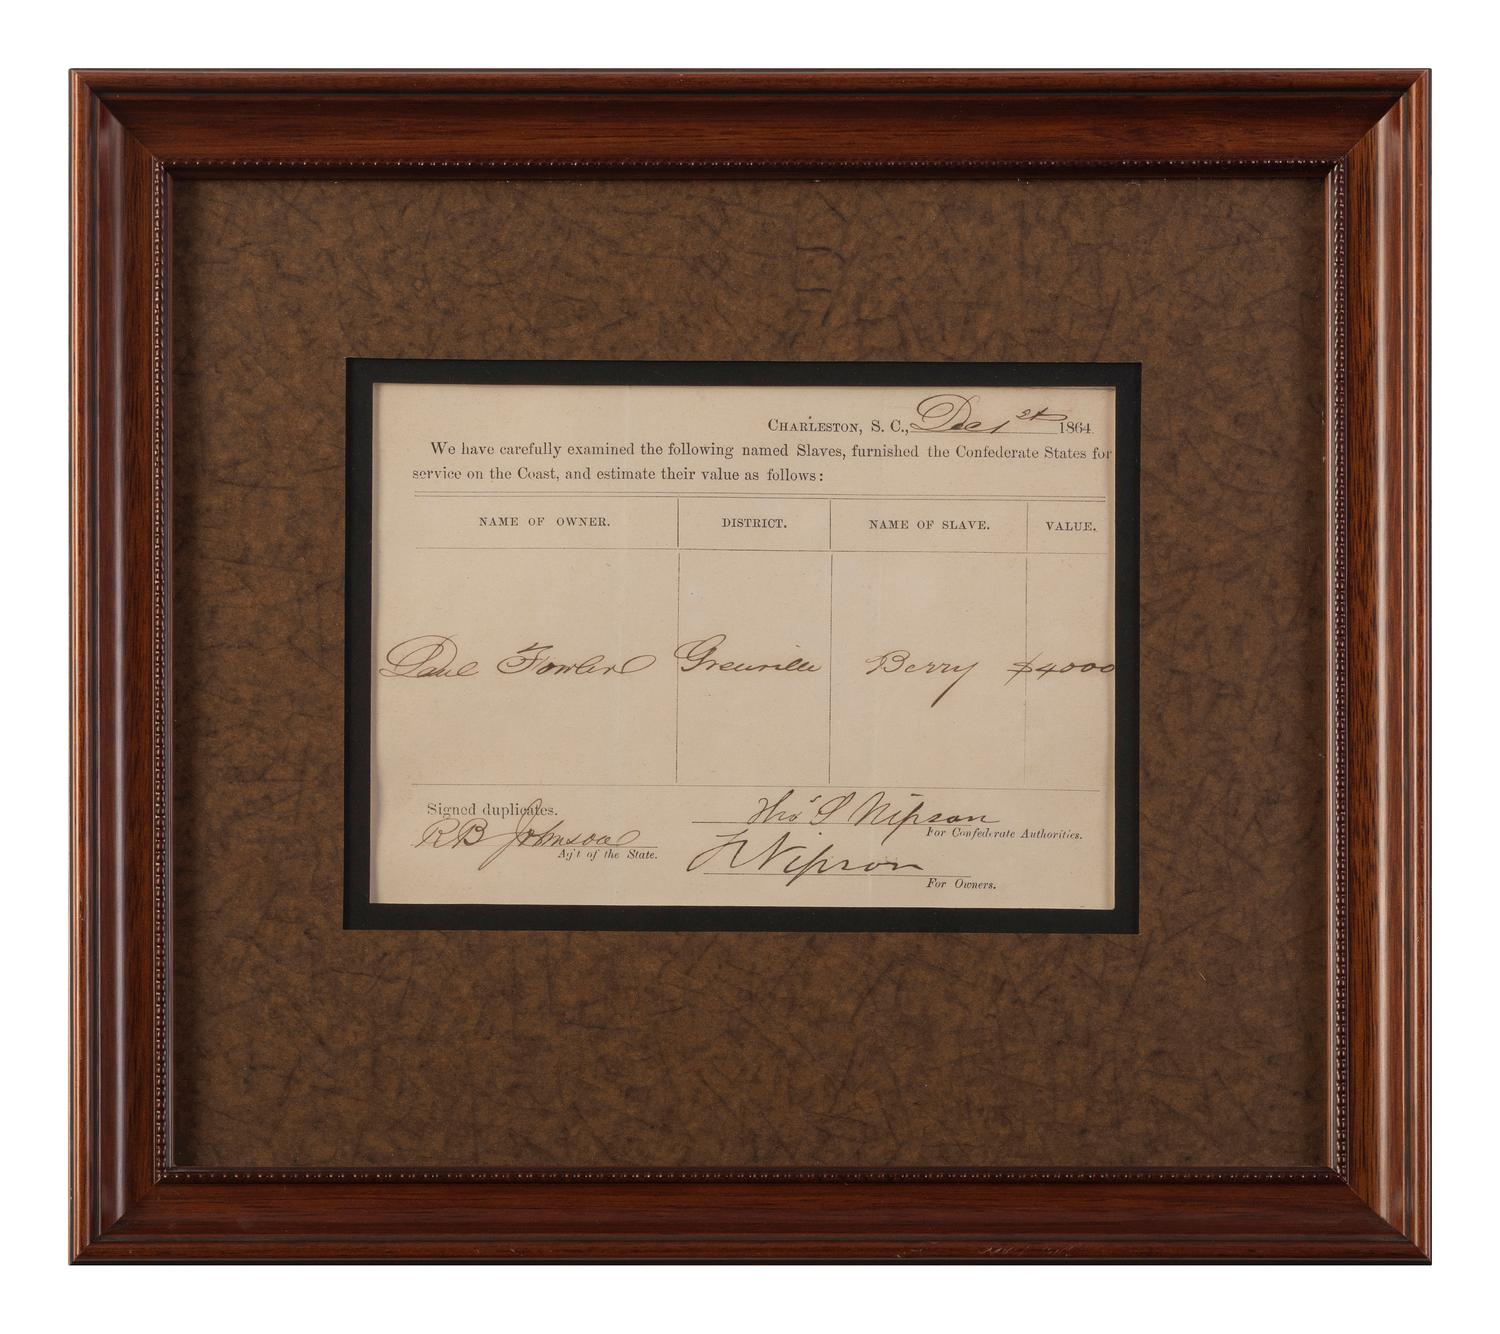 CHARLESTON, S. C., Dec 1st 1864
We have carefully examined the following named Slaves, furnished the Confederate States for
service on the Coast, and estimate their value as follows:
NAME OF OWNER. DISTRICT. NAME OF SLAVE. VALUE.
Greenville Berry $4000
Signed duplicates.
R B Johnson
Ag't of the State.
Tho S
For Confederate Authorities.
For Owners.